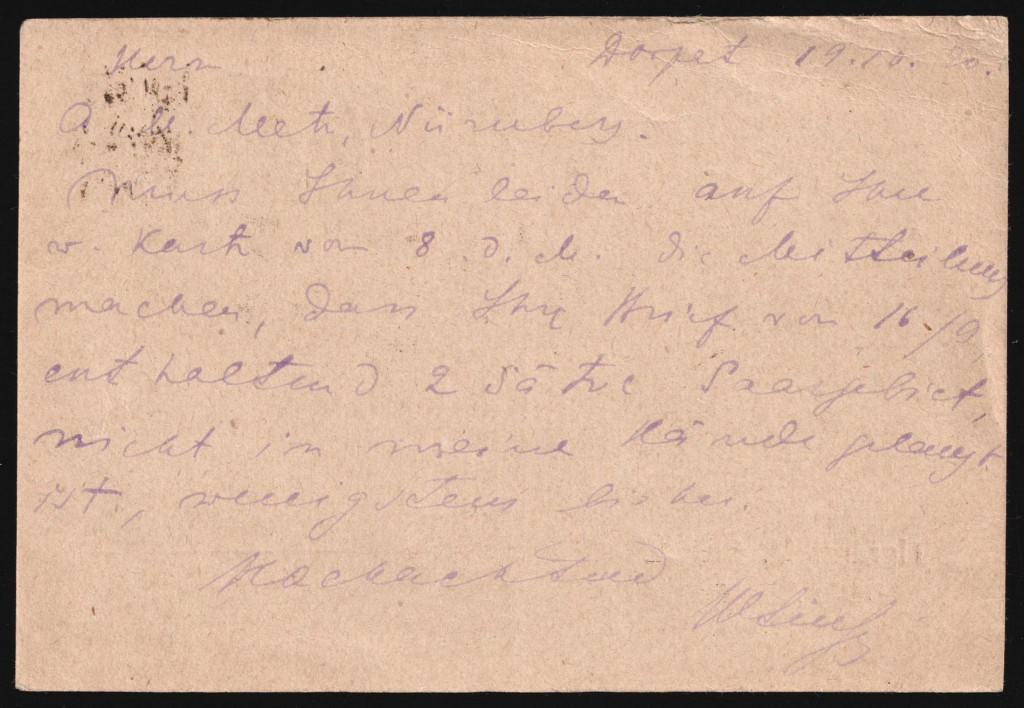 Herrn Dorpat 19.10.20.
A. M. Metz, Nürnberg.
Muss Ihnen leider auf Ihre
w. Karte vom 8. d. M. die Mitteilung
machen, dass Ihr Brief vom 16/9
enthaltend 2 Sätze Saargebiet,
nicht in meine Hände gelangt
ist, wenigstens bisher.
Hochachtend